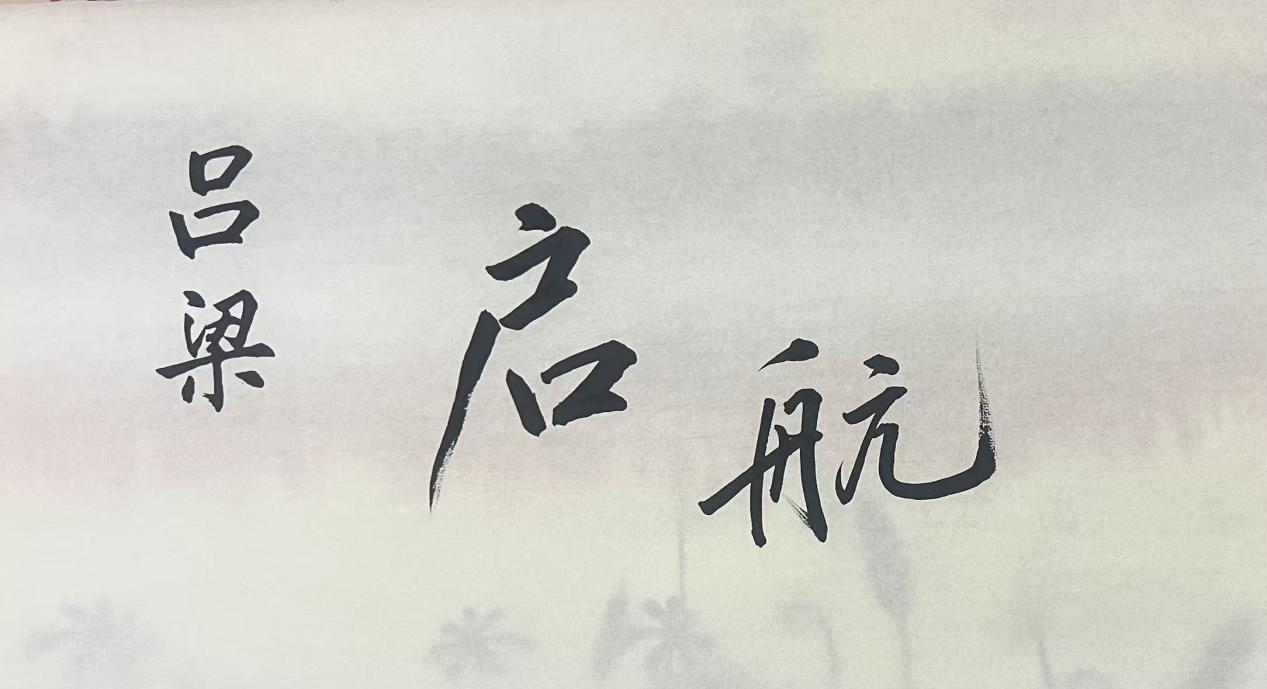 吕梁
启航